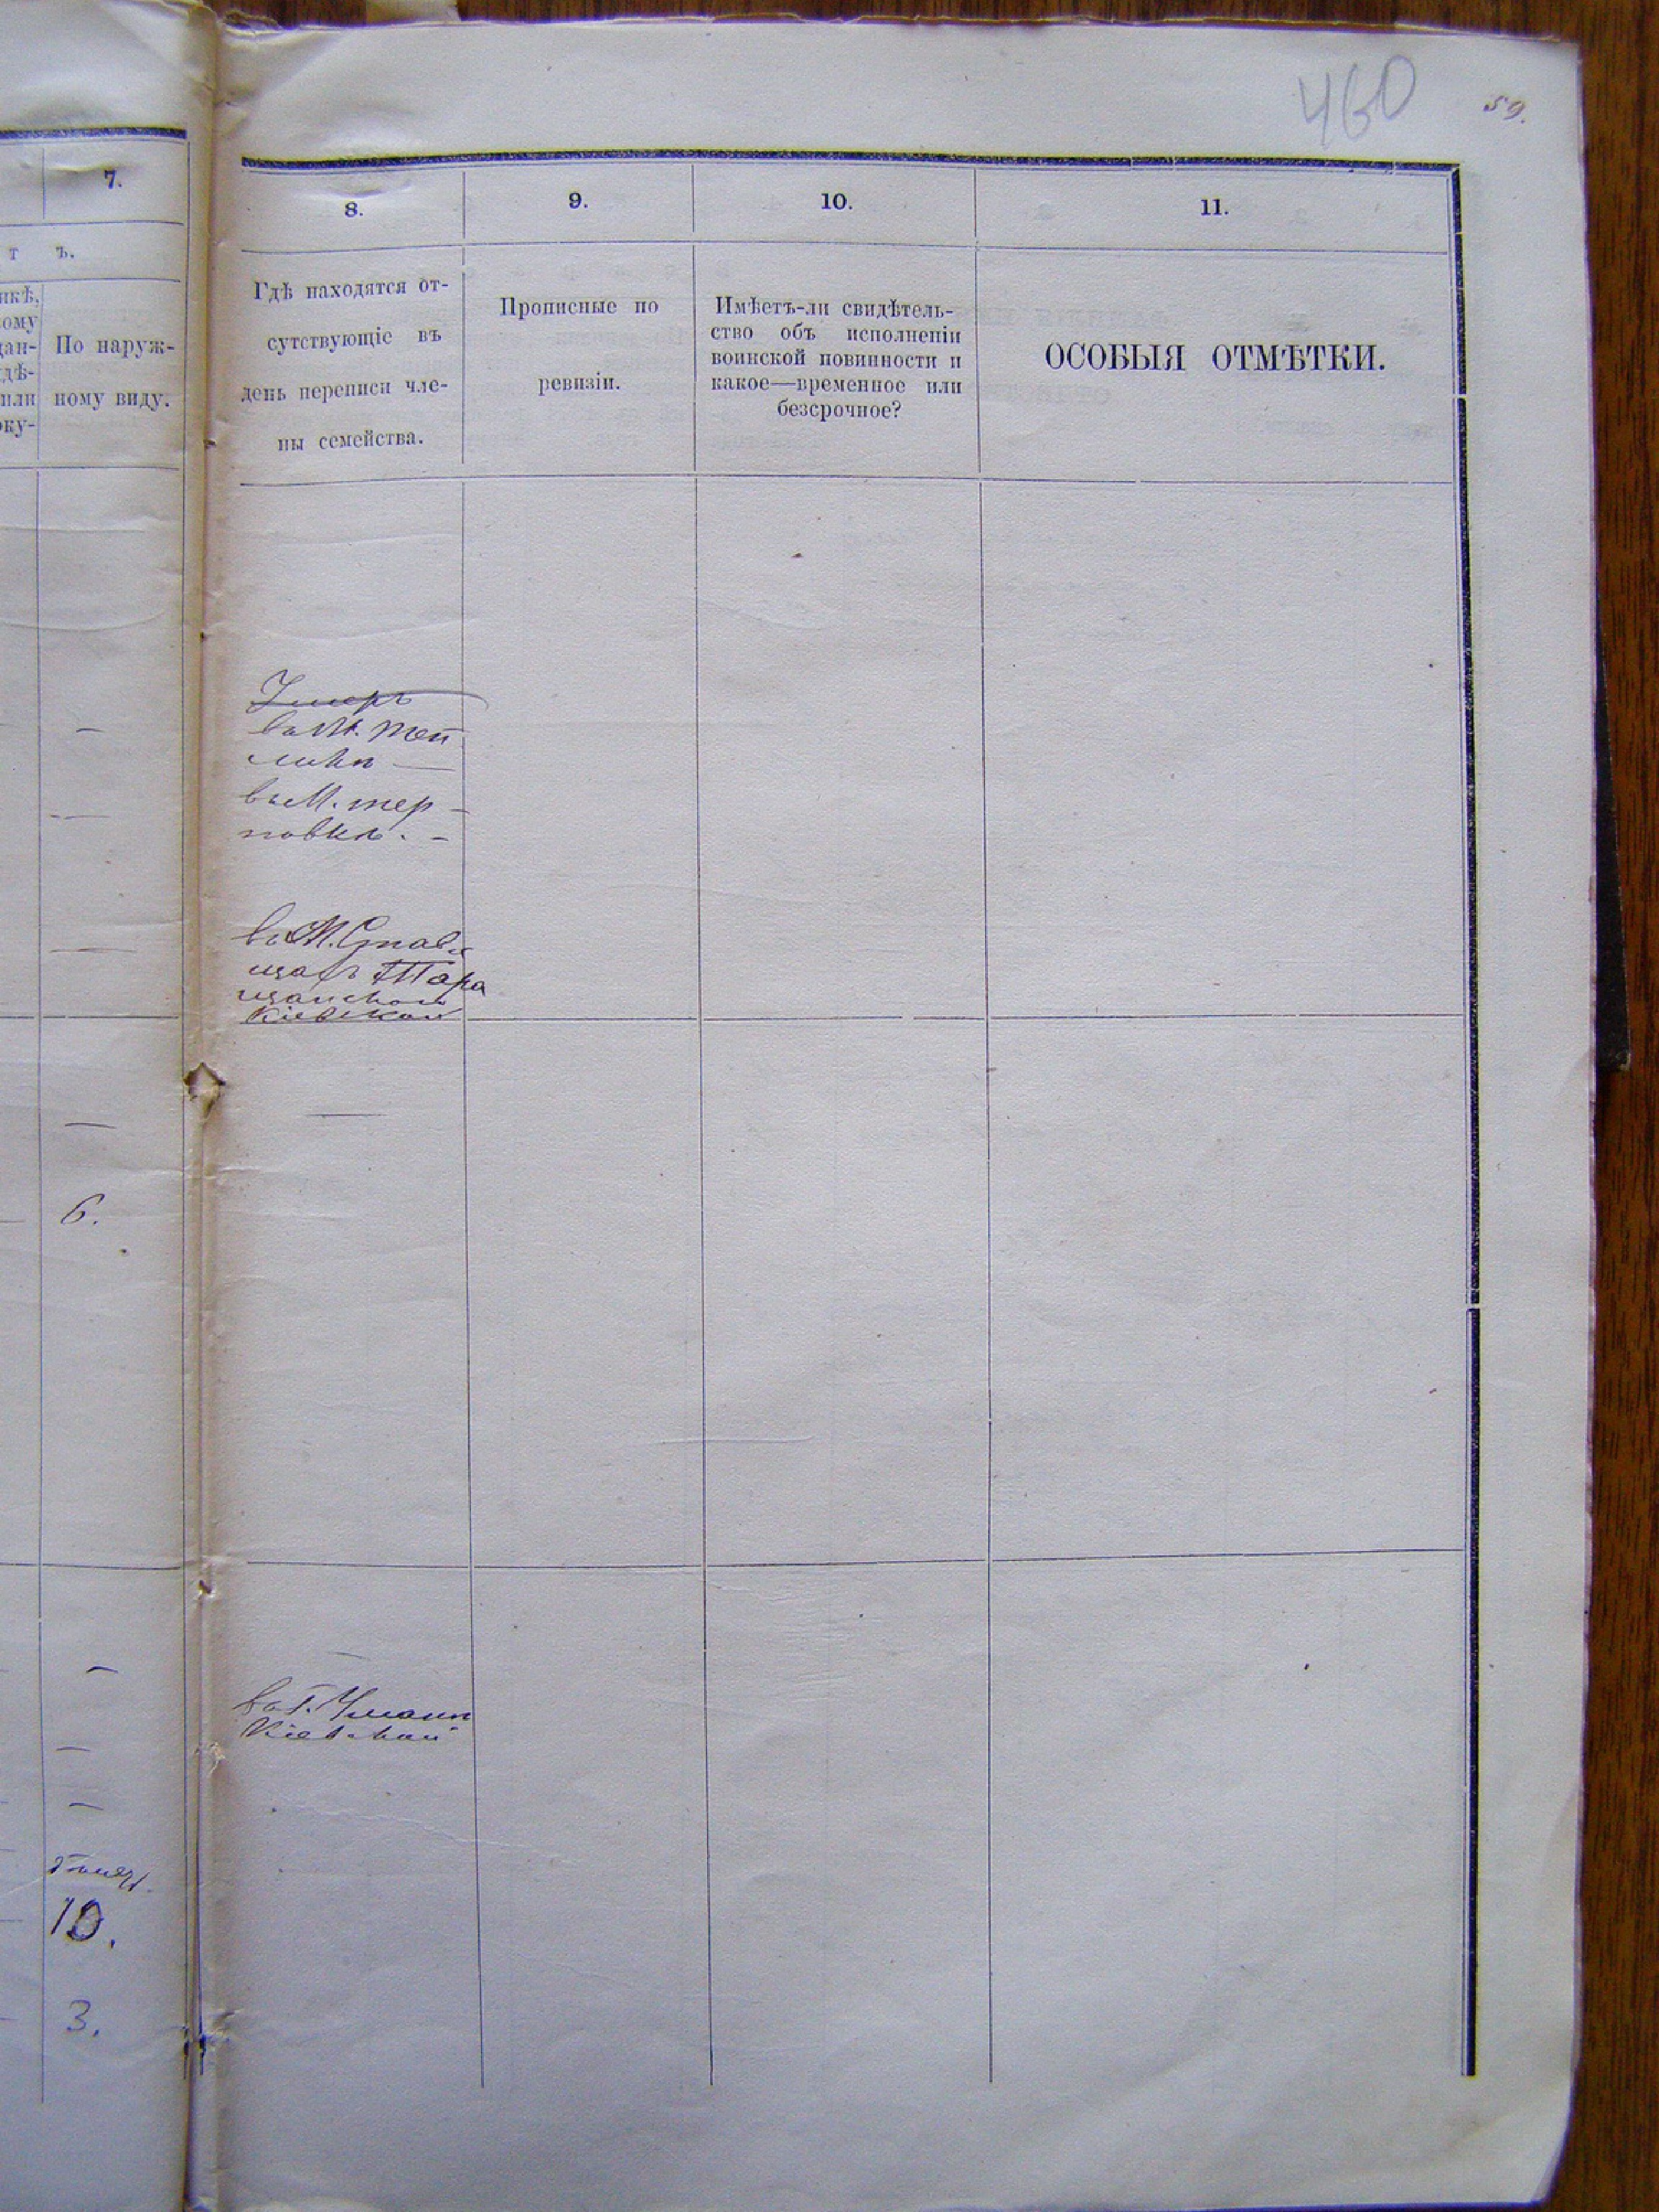 460
59.
7.
т ъ.
икѣ,
ому
дан-
дѣ-
или
оку-
По наруж-
ному виду.
6.
10.
3.
8.
9.
10.
11.
Гдѣ находятся от-
сутствующіе въ
день переписи чле-
ны семейства.
Прописные по
ревизіи.
Имѣетъ-ли свидѣтель-
ство объ исполненіи
воинской повинности и
какое—временное или
безсрочное?
ОСОБЫЯ ОТМѢТКИ.
Умеръ
въ М. Теп
ликѣ —
въ М. тер –
новкѣ. –
въ М. Стави
щахъ Тара
щанской
Кіевской
въ г. Умани
Кіевской